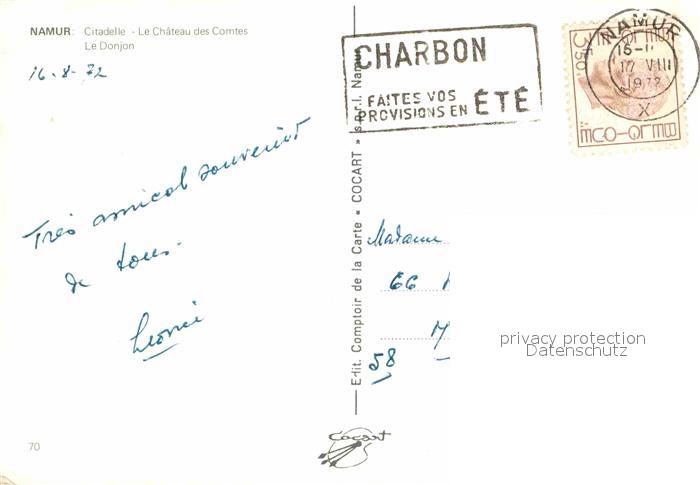 NAMUR: Citadelle - Le Château des Comtes
Le Donjon
16-8-72
Très amical souvenir
de tous.
Léonie
70
Edit. Comptoir de la Carte « COCART » s.p.r.l. Namur
Cocart
CHARBON
FAITES VOS
PROVISIONS EN ÉTÉ
NAMUR
17 VIII
1972
X
Madame
66
58
privacy protection
Datenschutz